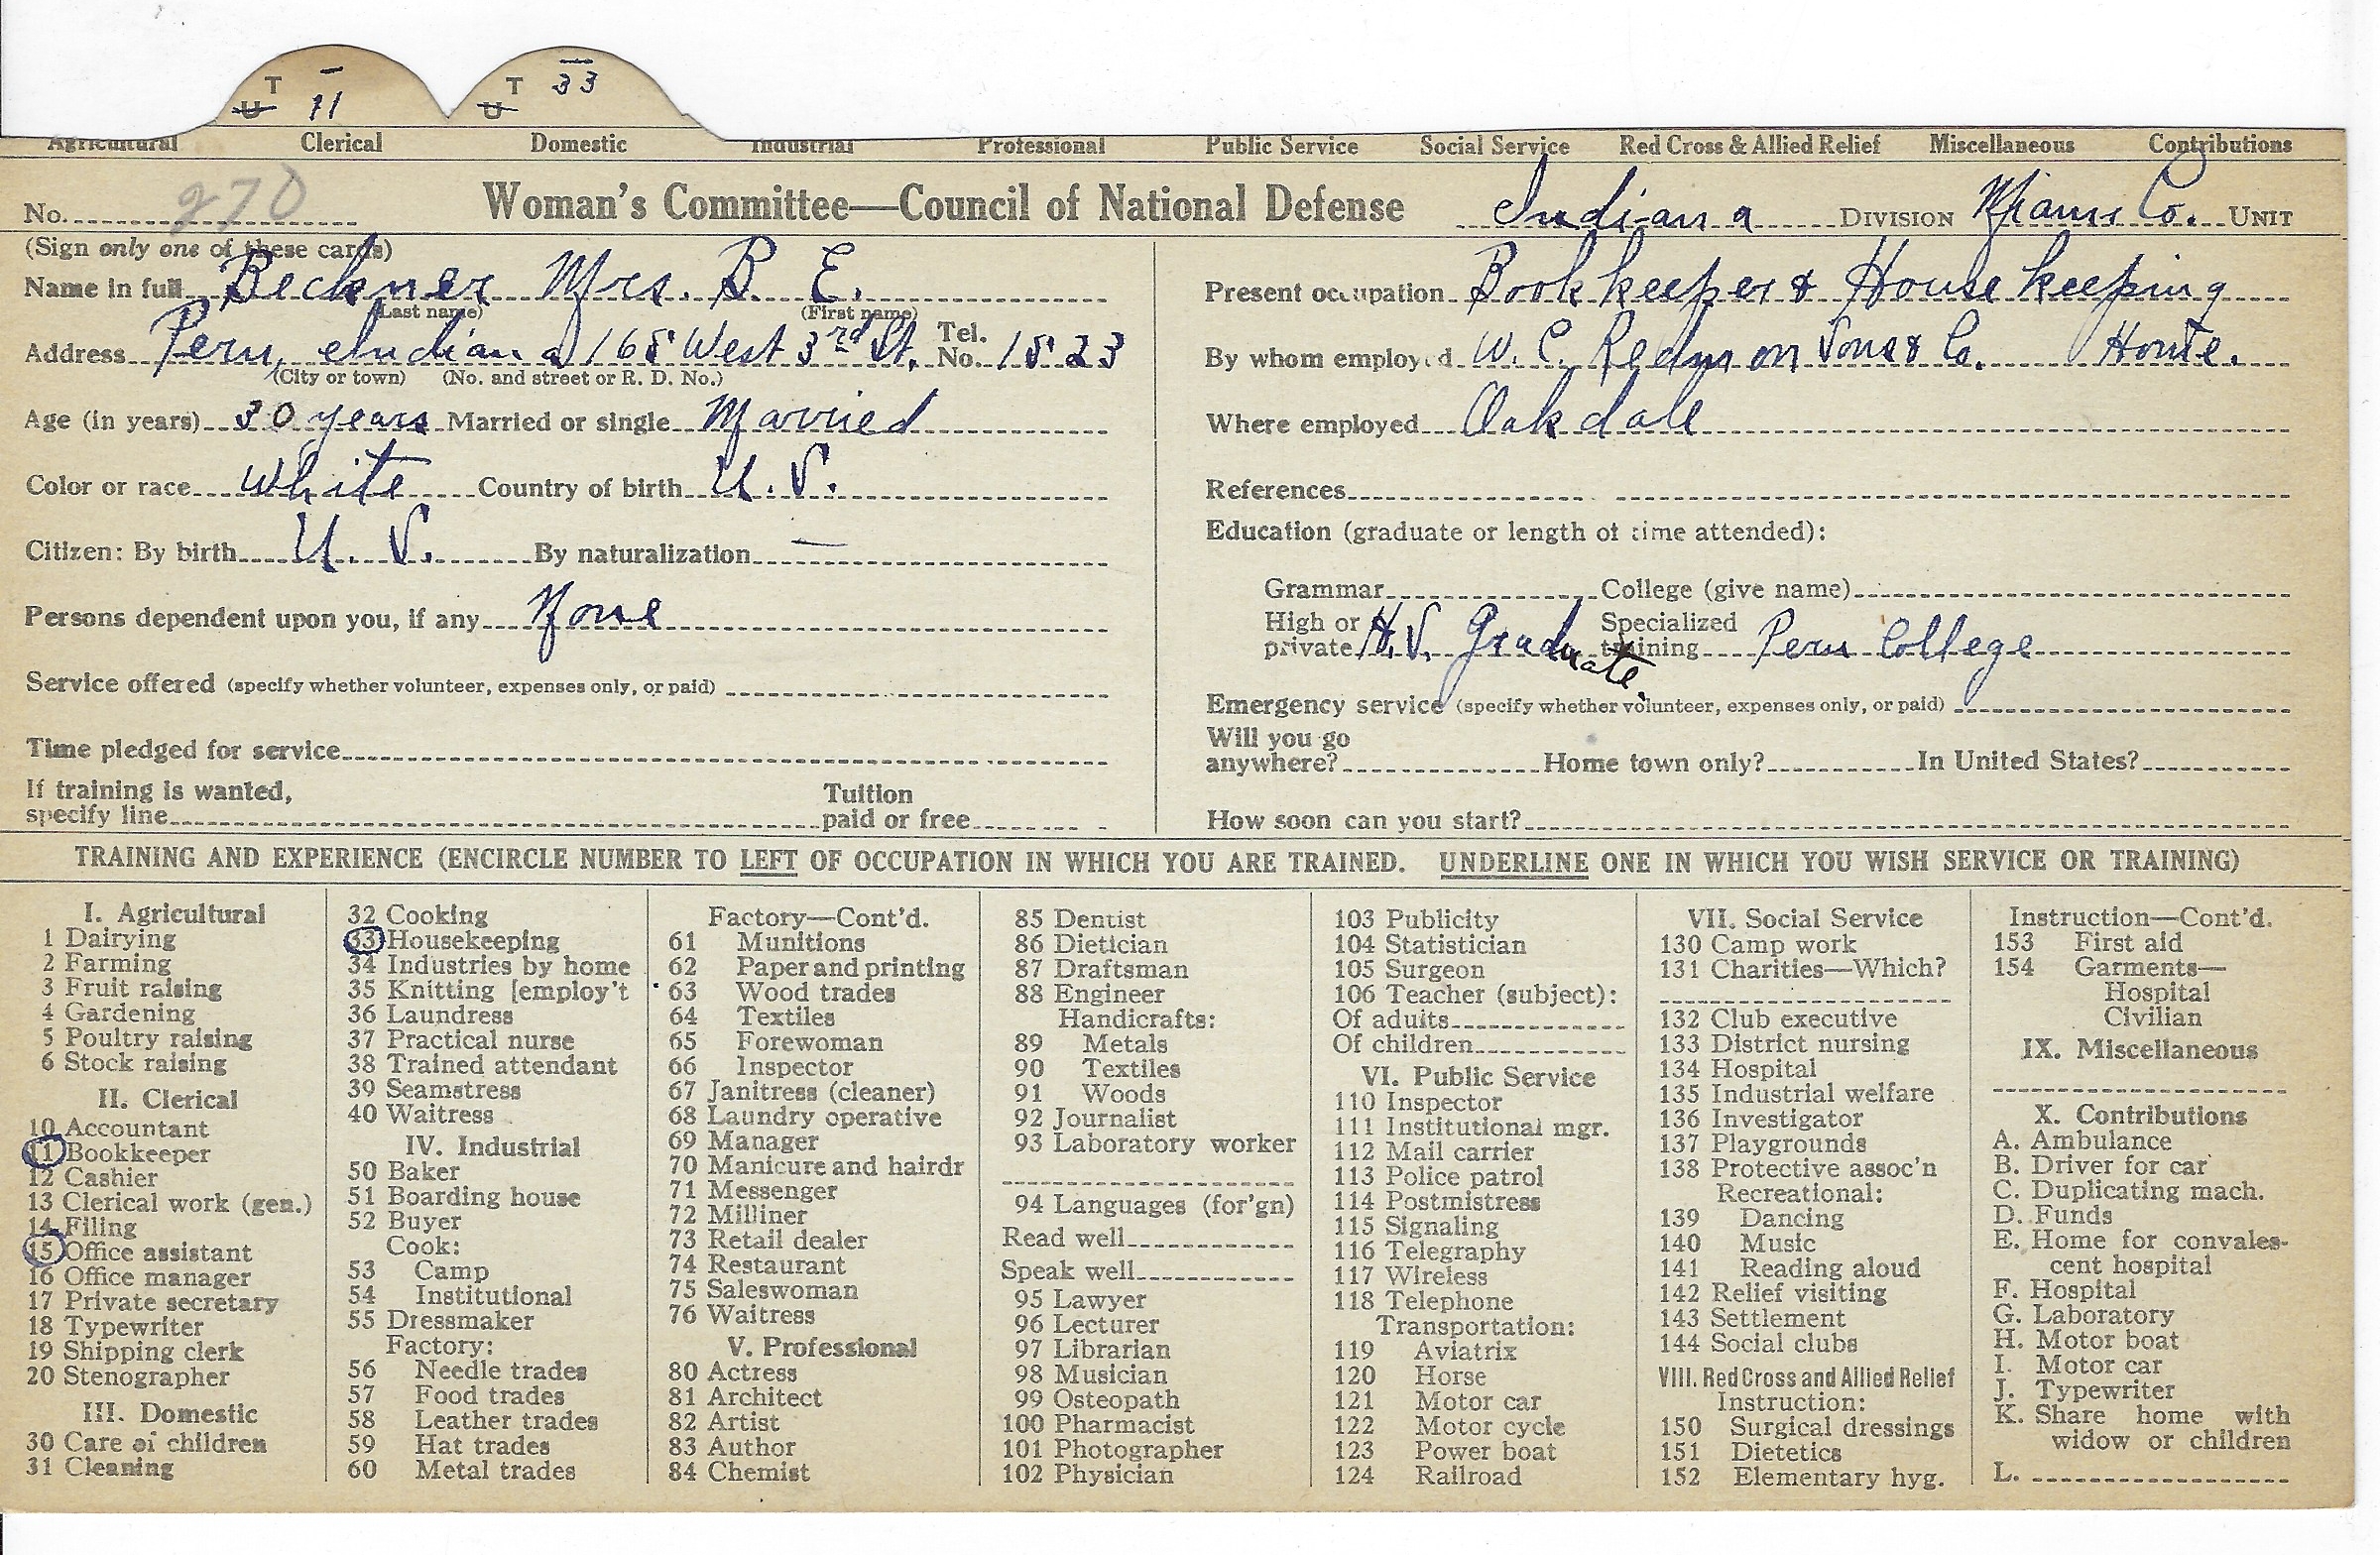 T — T —
U 11 U 33
Agricultural Clerical Domestic Industrial Professional Public Service Social Service Red Cross & Allied Relief Miscellaneous Contributions
No. 270 Woman's Committee—Council of National Defense Indiana DIVISION Miami Co. UNIT
(Sign only one of these cards)
Name in full Beckner Mrs. B. E.
(Last name) (First name)
Address Peru, Indiana 165 West 3rd St. Tel. No. 1523
(City or town) (No. and street or R. D. No.)
Age (in years) 30 years Married or single Married
Color or race White Country of birth U. S.
Citizen: By birth U. S. By naturalization —
Persons dependent upon you, if any None
Service offered (specify whether volunteer, expenses only, or paid)
Time pledged for service
If training is wanted,
specify line Tuition paid or free
Present occupation Bookkeeper & Housekeeping
By whom employed W. C. Redmon Sons & Co. Home.
Where employed Oakdale
References
Education (graduate or length of time attended):
Grammar College (give name)
High or private H.S. Graduate. Specialized training Peru College
Emergency service (specify whether volunteer, expenses only, or paid)
Will you go
anywhere? Home town only? In United States?
How soon can you start?
TRAINING AND EXPERIENCE (ENCIRCLE NUMBER TO LEFT OF OCCUPATION IN WHICH YOU ARE TRAINED. UNDERLINE ONE IN WHICH YOU WISH SERVICE OR TRAINING)
I. Agricultural
1 Dairying
2 Farming
3 Fruit raising
4 Gardening
5 Poultry raising
6 Stock raising
II. Clerical
10 Accountant
11 Bookkeeper
12 Cashier
13 Clerical work (gen.)
14 Filing
15 Office assistant
16 Office manager
17 Private secretary
18 Typewriter
19 Shipping clerk
20 Stenographer
III. Domestic
30 Care of children
31 Cleaning
32 Cooking
33 Housekeeping
34 Industries by home
35 Knitting [employ't
36 Laundress
37 Practical nurse
38 Trained attendant
39 Seamstress
40 Waitress
IV. Industrial
50 Baker
51 Boarding house
52 Buyer
Cook:
53 Camp
54 Institutional
55 Dressmaker
Factory:
56 Needle trades
57 Food trades
58 Leather trades
59 Hat trades
60 Metal trades
Factory—Cont'd.
61 Munitions
62 Paper and printing
63 Wood trades
64 Textiles
65 Forewoman
66 Inspector
67 Janitress (cleaner)
68 Laundry operative
69 Manager
70 Manicure and hairdr
71 Messenger
72 Milliner
73 Retail dealer
74 Restaurant
75 Saleswoman
76 Waitress
V. Professional
80 Actress
81 Architect
82 Artist
83 Author
84 Chemist
85 Dentist
86 Dietician
87 Draftsman
88 Engineer
Handicrafts:
89 Metals
90 Textiles
91 Woods
92 Journalist
93 Laboratory worker
94 Languages (for'gn)
Read well
Speak well
95 Lawyer
96 Lecturer
97 Librarian
98 Musician
99 Osteopath
100 Pharmacist
101 Photographer
102 Physician
103 Publicity
104 Statistician
105 Surgeon
106 Teacher (subject):
Of adults
Of children
VI. Public Service
110 Inspector
111 Institutional mgr.
112 Mail carrier
113 Police patrol
114 Postmistress
115 Signaling
116 Telegraphy
117 Wireless
118 Telephone
Transportation:
119 Aviatrix
120 Horse
121 Motor car
122 Motor cycle
123 Power boat
124 Railroad
VII. Social Service
130 Camp work
131 Charities—Which?
132 Club executive
133 District nursing
134 Hospital
135 Industrial welfare
136 Investigator
137 Playgrounds
138 Protective assoc'n
Recreational:
139 Dancing
140 Music
141 Reading aloud
142 Relief visiting
143 Settlement
144 Social clubs
VIII. Red Cross and Allied Relief
Instruction:
150 Surgical dressings
151 Dietetics
152 Elementary hyg.
Instruction—Cont'd.
153 First aid
154 Garments—
Hospital
Civilian
IX. Miscellaneous
X. Contributions
A. Ambulance
B. Driver for car
C. Duplicating mach.
D. Funds
E. Home for convales-
cent hospital
F. Hospital
G. Laboratory
H. Motor boat
I. Motor car
J. Typewriter
K. Share home with
widow or children
L.